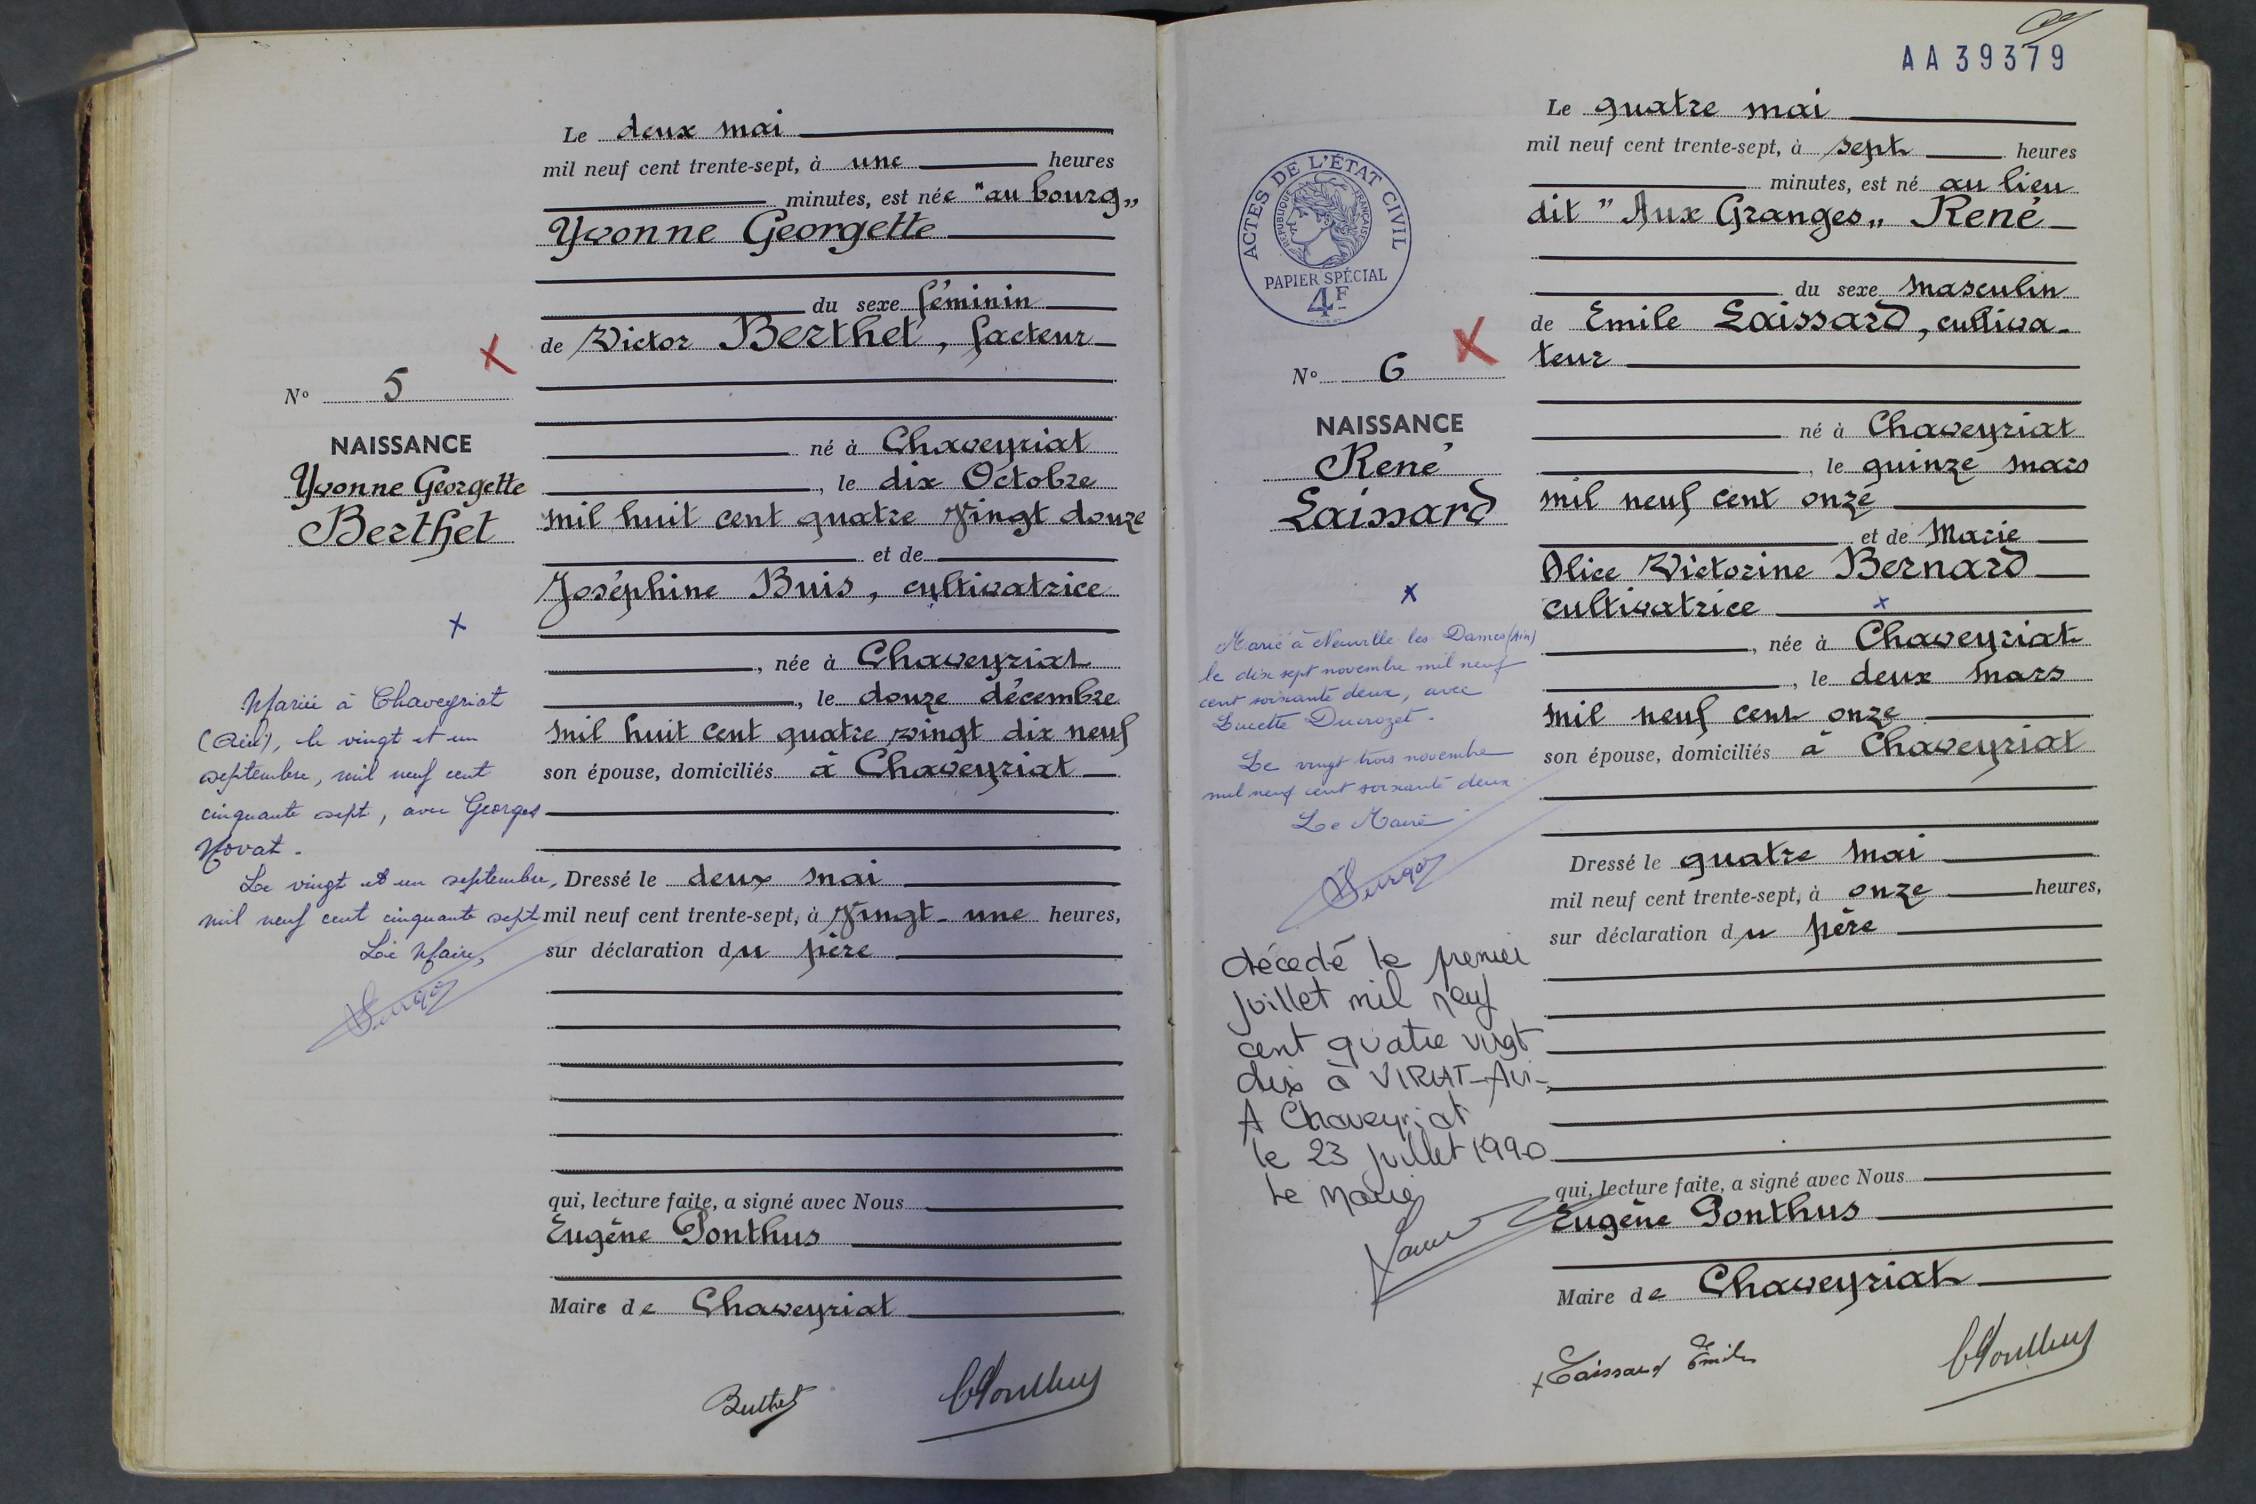 Le deux mai
mil neuf cent trente-sept, à une heures
minutes, est née "au bourg"
Yvonne Georgette
du sexe féminin
de Victor Berthet, facteur
N° 5
né à Chaveyriat
NAISSANCE
Yvonne Georgette
Berthet
, le dix Octobre
mil huit cent quatre vingt douze
et de
Joséphine Buis, cultivatrice
, née à Chaveyriat
, le douze décembre
mil huit cent quatre vingt dix neuf
son épouse, domiciliés à Chaveyriat
Mariée à Chaveyriat
(Ain), le vingt et un
septembre, mil neuf cent
cinquante sept, avec Georges
Le vingt et un septembre,
mil neuf cent cinquante sept
Le Maire,
Dressé le deux mai
mil neuf cent trente-sept, à vingt-une heures,
sur déclaration du père
qui, lecture faite, a signé avec Nous
Eugène Ponthus
Maire de Chaveyriat
Berthet
AA39379
Le quatre mai
mil neuf cent trente-sept, à sept heures
minutes, est né au lieu
dit "Aux Granges" René
du sexe masculin
de Emile Laissard, cultiva-
teur
ACTES DE L'ÉTAT CIVIL
RÉPUBLIQUE FRANÇAISE
PAPIER SPÉCIAL
4F
N° 6
NAISSANCE
René
Laissard
né à Chaveyriat
, le quinze mars
mil neuf cent onze
et de Marie
Alice Victorine Bernard
cultivatrice
, née à Chaveyriat
, le deux mars
mil neuf cent onze
son épouse, domiciliés à Chaveyriat
Marié à Neuville les Dames (Ain)
le dix sept novembre mil neuf
cent soixante deux, avec
Lucette Ducrozet.
Le vingt trois novembre
mil neuf cent soixante deux
Le Maire
décédé le premier
juillet mil neuf
cent quatre vingt
dix à VIRIAT-Ain-
A Chaveyriat
le 23 juillet 1990
Le Maire
Dressé le quatre mai
mil neuf cent trente-sept, à onze heures,
sur déclaration du père
qui, lecture faite, a signé avec Nous
Eugène Ponthus
Maire de Chaveyriat
Laissard Emile